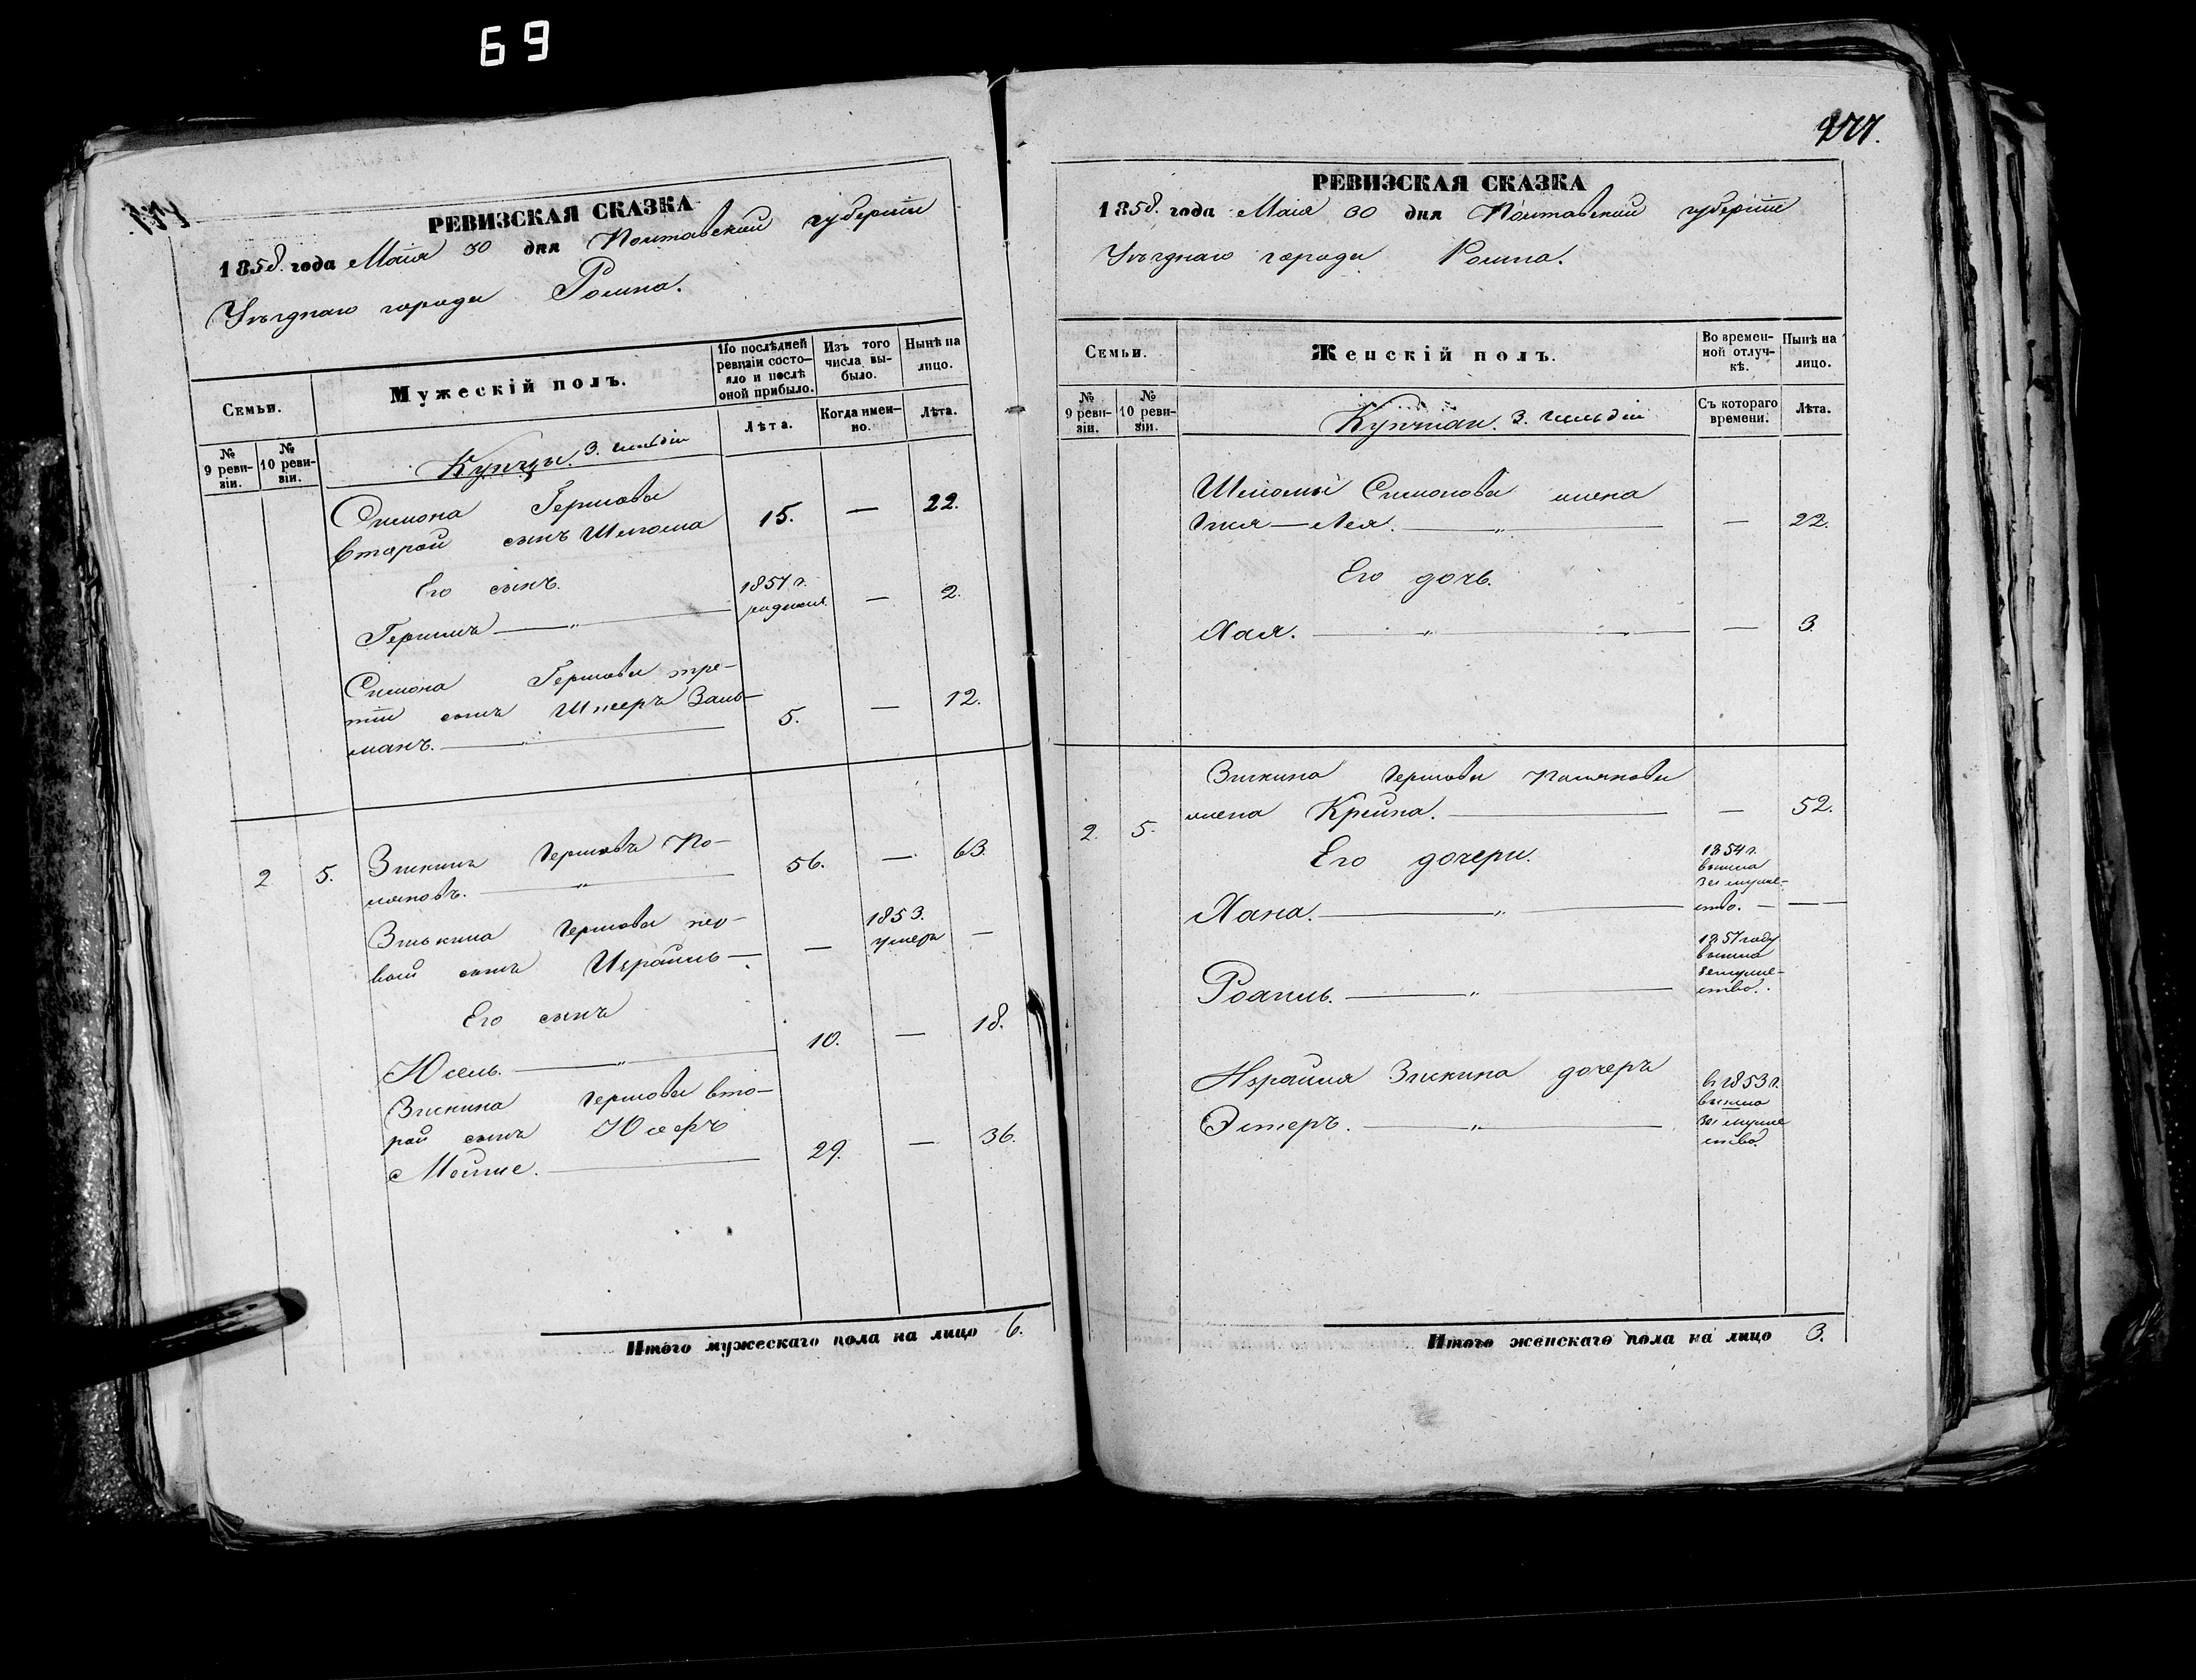 69
РЕВИЗСКАЯ СКАЗКА
1858. года Маія 30 дня Полтавской губерніи
Уѣзднаго города Ромна.
Семьи.
Мужескій полъ.
По послѣдней ревизіи состо-
яло и послѣ оной прибыло.
Изъ того числа вы-
было.
Нынѣ на лицо.
№ 9 реви-
зіи.
№ 10 реви-
зіи.
Лѣта.
Когда имен-
но.
Лѣта.
Купцы. 3. гильдіи
Симона Гершова
второй сынъ Шлиома 15. — 22.
Его сынъ.
Гершнъ — „ — 1857 г. родился. — 2.
Симона Гершова тре-
тій сынъ Шнеръ Заль-
манъ. — „ — 5. — 12.
2 5. Зискинъ Гершовъ По-
ляковъ. — „ — 56. — 63.
Зискина Гершова пер-
вый сынъ Израиль — — 1853. умеръ —
Его сынъ
Юсель. — „ — 10. — 18.
Зискина Гершова вто-
рой сынъ Юсефъ
Мейше. — 29. — 36.
Итого мужескаго пола на лицо 6.
277.
РЕВИЗСКАЯ СКАЗКА
1858. года Маія 30 дня Полтавской губерніи
Уѣзднаго города Ромна.
Семьи.
Женскій полъ.
Во времен-
ной отлуч-
кѣ.
Нынѣ на лицо.
№ 9 реви-
зіи.
№ 10 реви-
зіи.
Съ котораго времени.
Лѣта.
Купчихи. 3. гильдіи
Шлиомы Симонова жена
— Лея. — „ — — 22.
Его дочь.
Хая. — „ — — 3.
2. 5. Зискина Гершова Полякова
жена Крейна. — — 52.
Его дочери.
Хана. — „ — 1854 г. вышла за муже-
ство. — —
Роаиль. — „ — 1857 году вышла замуже-
ство.
Израиля Зискина дочеръ
Эстеръ. — „ — въ 1853 г. вышла за муже
ство.
Итого женскаго пола на лицо 3.